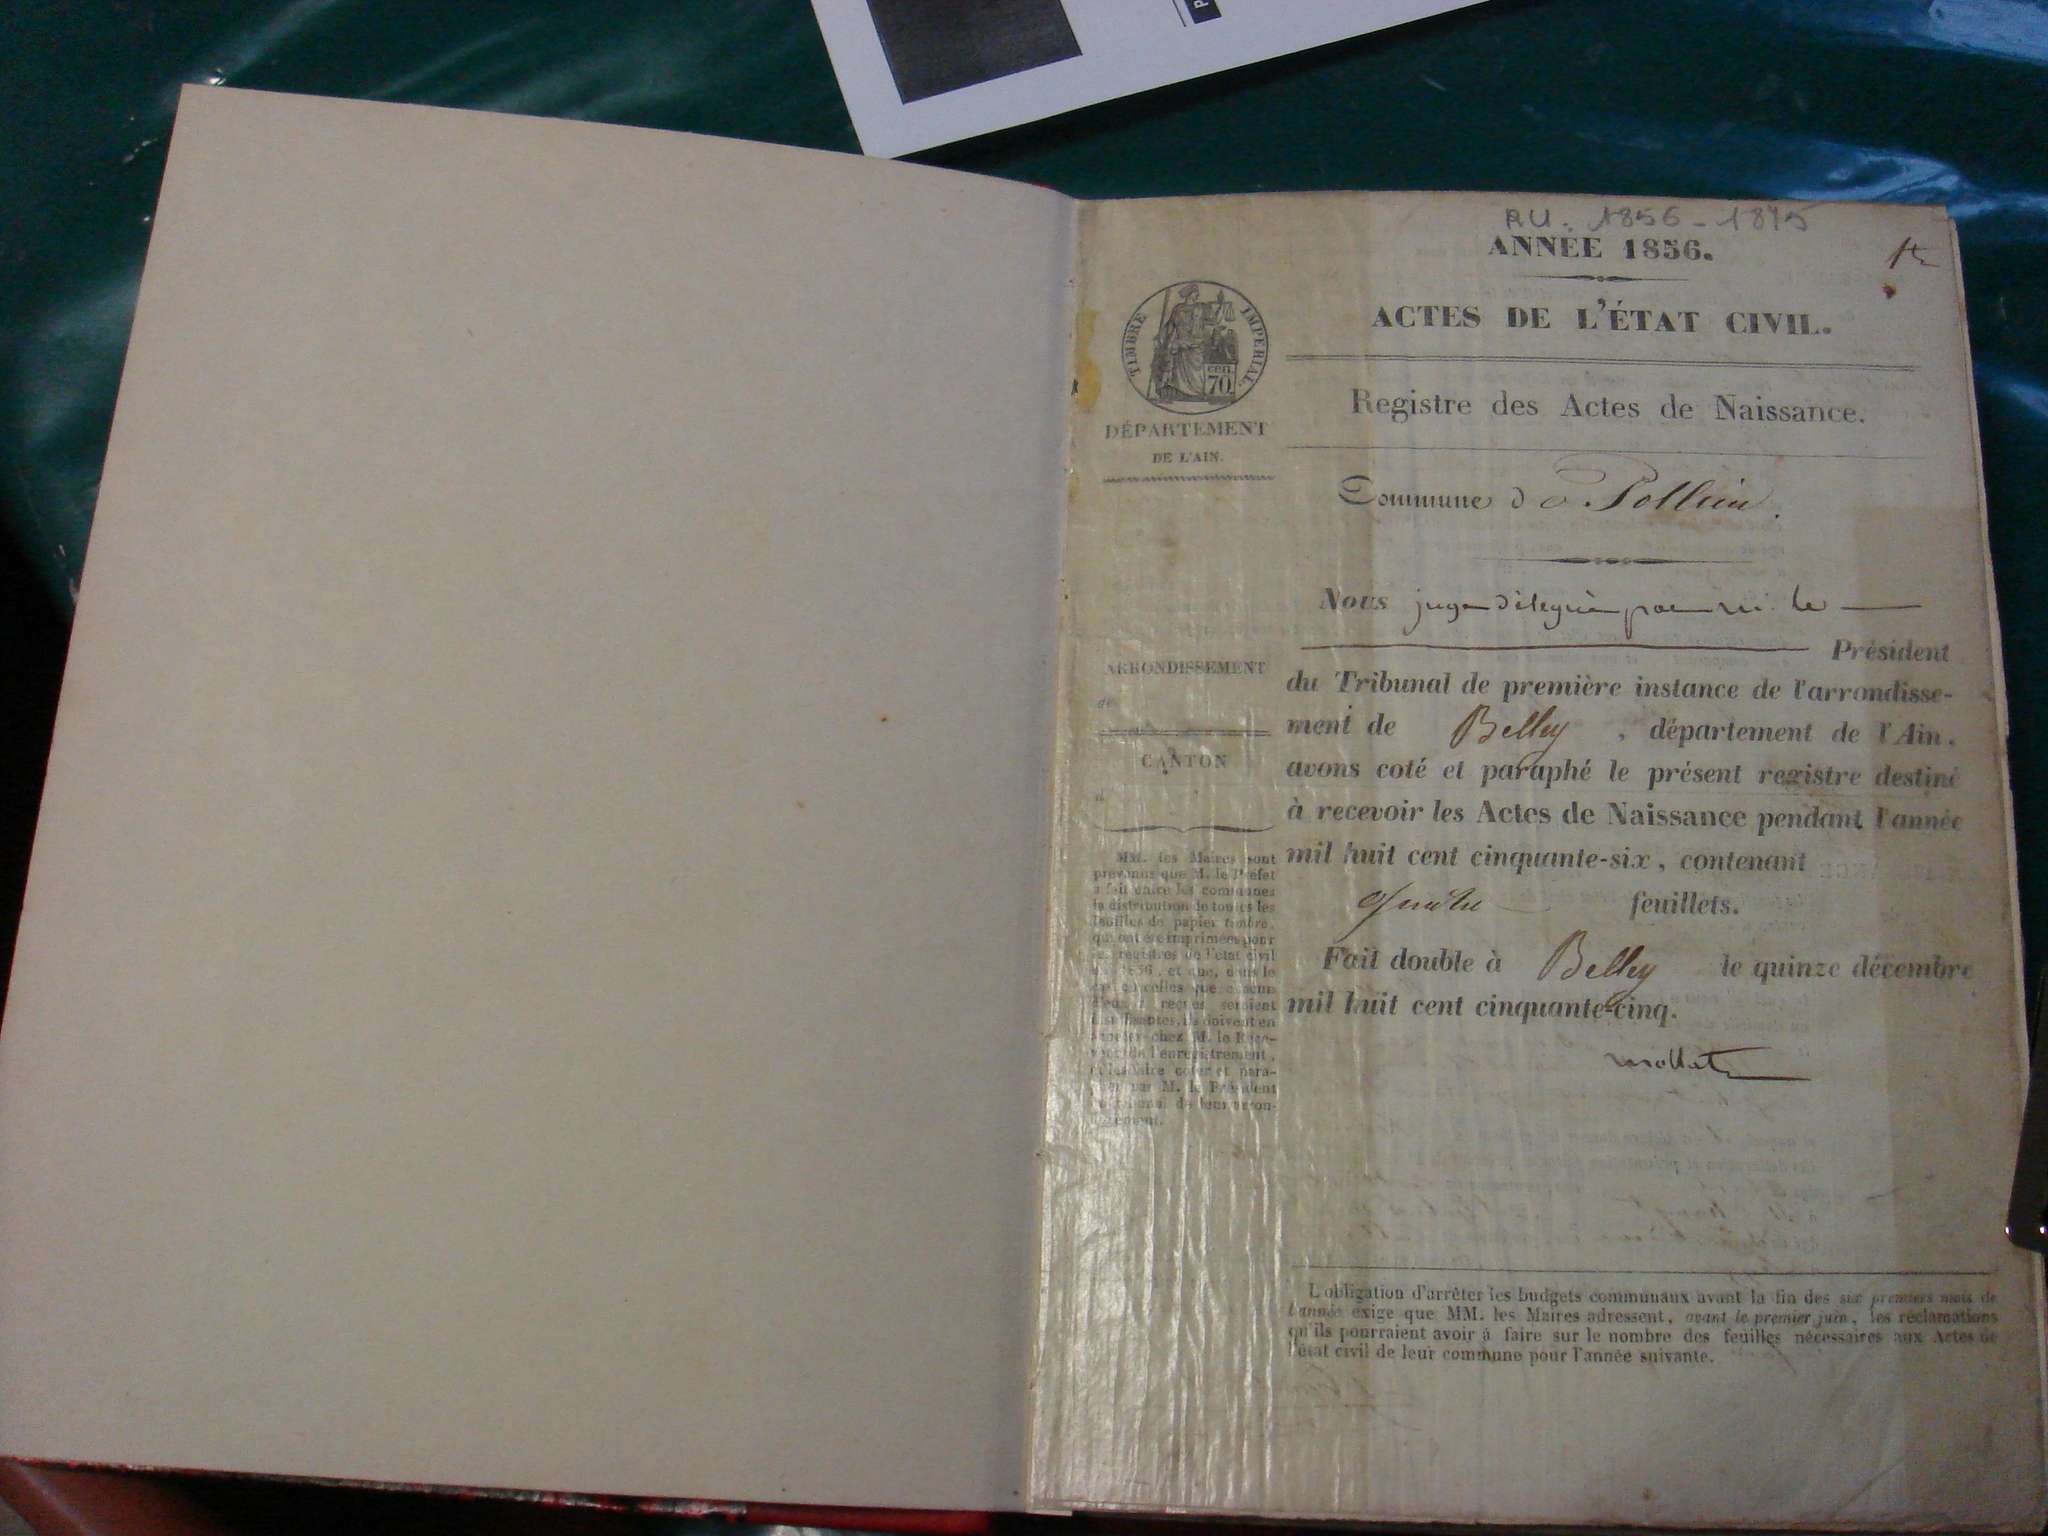 1856 - 1875
ANNÉE 1856.
TIMBRE IMPERIAL.
cen.
70
ACTES DE L'ÉTAT CIVIL.
Registre des Actes de Naissance.
DÉPARTEMENT
DE L'AIN.
Commune d Pollieu.
Nous juge délégué par m. le
Président
du Tribunal de première instance de l'arrondisse-
ment de Belley, département de l'Ain,
avons coté et paraphé le présent registre destiné
à recevoir les Actes de Naissance pendant l'année
mil huit cent cinquante-six, contenant
quatre feuillets.
Fait double à Belley le quinze décembre
mil huit cent cinquante-cinq.
Mollet
ARRONDISSEMENT
de
CANTON
d
MM. les Maires sont
prévenus que M. le Préfet
a fait entre les communes
la distribution de toutes les
feuilles de papier timbré,
qui ont été imprimées pour
les registres de l'état civil
de 1856, et que, dans le
cas où celles que chacun
d'eux a reçues seraient
insuffisantes, ils doivent en
acheter chez M. le Rece-
veur de l'enregistrement,
et les faire coter et para-
pher par M. le Président
du tribunal de leur arron-
dissement.
L'obligation d'arrêter les budgets communaux avant la fin des six premiers mois de
l'année exige que MM. les Maires adressent, avant le premier juin, les réclamations
qu'ils pourraient avoir à faire sur le nombre des feuilles nécessaires aux Actes de
l'état civil de leur commune pour l'année suivante.